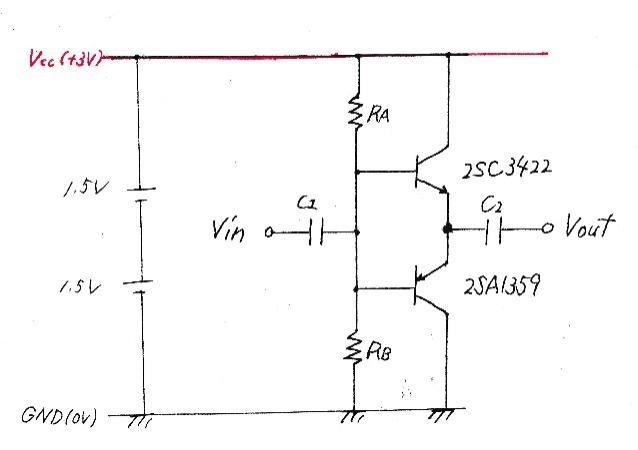 Vcc (+3V)
RA
1.5V
2SC3422
C1
C2
Vin
Vout
1.5V
2SA1359
RB
GND(0V)